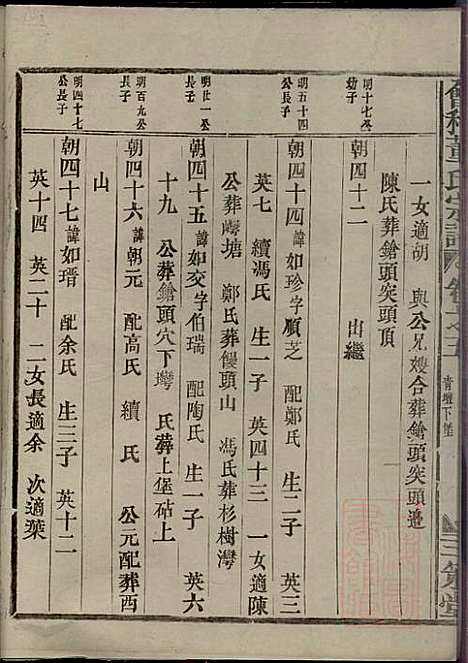 會稽董氏宗譜 卷之五 青壇下堡 三策堂
一女適胡 與公兄嫂合葬鎗頭突頭邊
陳氏葬鎗頭突頭頂
明十七公
幼子
朝四十二 出繼
明五十四
公長子
朝四十四 諱如珍字順芝 配鄭氏 生二子 英三
英七 續馮氏 生一子 英四十三 一女適陳
公葬嶹塘 鄭氏葬饅頭山 馮氏葬杉樹灣
明廿一公
長子
朝四十五 諱如交字伯瑞 配陶氏 生一子 英六
十九 公葬鎗頭穴下灣 氏葬上堡砧上
明百九公
長子
朝四十六 諱朝元 配高氏 續 氏 公元配葬西
山
明四十七
公長子
朝四十七 諱如瑨 配余氏 生三子 英十二
英十四 英二十 二女長適余 次適葉